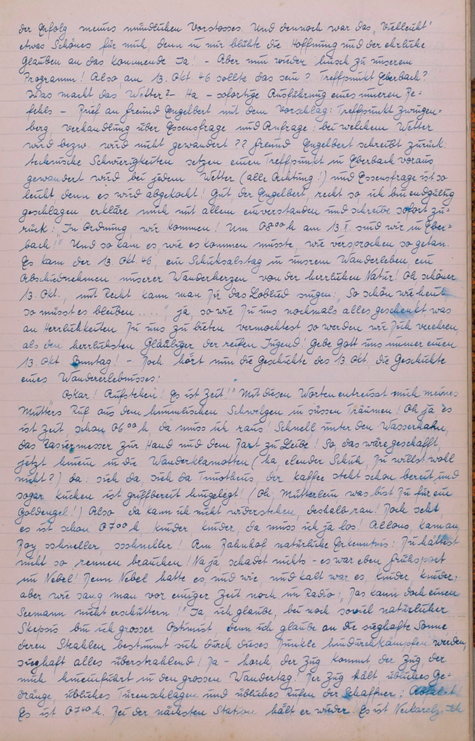 der Erfolg meines mündlichen Vorstosses. Und dennoch war das „Vielleicht"
etwas Schönes für mich, denn in mir blühte die Hoffnung und der ehrliche
Glauben an das kommende Ja! - Aber nun wieder husch zu unserem
Programm! Also am 13. Okt 46 sollte das sein? Treffpunkt Eberbach?
Was macht das Wetter? - Ha - sofortige Ausführung eines inneren Be-
fehls - Brief an Freund Engelbert mit dem Vorschlag: Treffpunkt Zwingen-
berg Verhandlung über Essensfrage und Anfrage: bei welchem Wetter
wird bezw. wird nicht gewandert?? Freund Engelbert schreibt zurück:
technische Schwierigkeiten setzen einen Treffpunkt in Eberbach voraus
gewandert wird bei jedem Wetter (alle Achtung!) und Essensfrage ist so
leicht denn es wird abgekocht! Gut, der Engelbert, recht so ich bin endgültig
geschlagen erkläre mich mit allem einverstanden und schreibe sofort zu-
rück: In Ordnung, wir kommen! Um 08⁰⁰ h am 13.X. sind wir in Eber-
bach!" Und so kam es wie es kommen musste, wie versprochen so getan.
Es kam der 13. Okt 46, ein Schicksalstag in unserem Wanderleben, ein
Abschiednehmen unserer Wanderherzen von der herrlichen Natur! Oh schöner
13. Okt., mit Recht kann man Dir das Loblied singen: „So schön wie heute
so müsst es bleiben ....." ja, so wie Du uns nochmals alles geschenkt was
an Herrlichkeiten Du uns zu bieten vermochtest so werden wir Dich verehren,
als den herrlichsten Gläubiger der reifen Jugend! Gebe Gott uns immer einen
13. Okt Sonntag! - Doch hört nun die Geschichte des 13. Okt, die Geschichte
eines Wandererlebnisses:
„Oskar! Aufstehen! Es ist Zeit!" Mit diesen Worten entreisst mich meines
Mutters Ruf aus dem himmlischen Schwelgen in süssen Träumen! Oh ja es
ist Zeit schon 06⁰⁰ h da muss ich raus! Schnell unter den Wasserhahn
das Rasiermesser zur Hand und dem Bart zu Leibe! So, das wäre geschafft,
jetzt hinein in die Wanderklamotten (ha elender Schuh, Du willst wohl
nicht?) da: sieh da, sieh da Timotheus, der Kaffee steht schon bereit und
sogar Kuchen ist griffbereit hingelegt! (Oh, Mütterlein was bist Du für ein
Goldengel!) Also da kann ich nicht widerstehen, deshalb ran! Doch seht
es ist schon 07⁰⁰ h, Kinder, Kinder, da muss ich ja los! Allons,
schneller, ssschneller! Am Bahnhof natürliche Erkenntnis: Du hättest
nicht so rennen brauchen! Na ja schadet nichts - es war eben Frühsport
im Nebel! Denn Nebel hatte es, und wie und kalt war es, Kinder, Kinder,
aber wie sang man vor einiger Zeit noch im Radio: „Das kann doch einen
Seemann nicht erschüttern!" Ja, ich glaube, bei noch soviel natürlicher
Skepsis bin ich grosser Optimist, denn ich glaube an die sieghafte Sonne
deren Strahlen bestimmt sich durch dieses Dunkle hindurchkämpfen werden,
sieghaft alles überstrahlend! Ja - horch der Zug kommt der Zug der
mich hineinführt in den grossen Wandertag. Der Zug hält übliches Ge-
dränge, übliches Türenschlagen und übliches Rufen der Schaffner:
Es ist 07¹⁰ h. Bei der nächsten Station hält er wieder. Es ist Neckarelz.